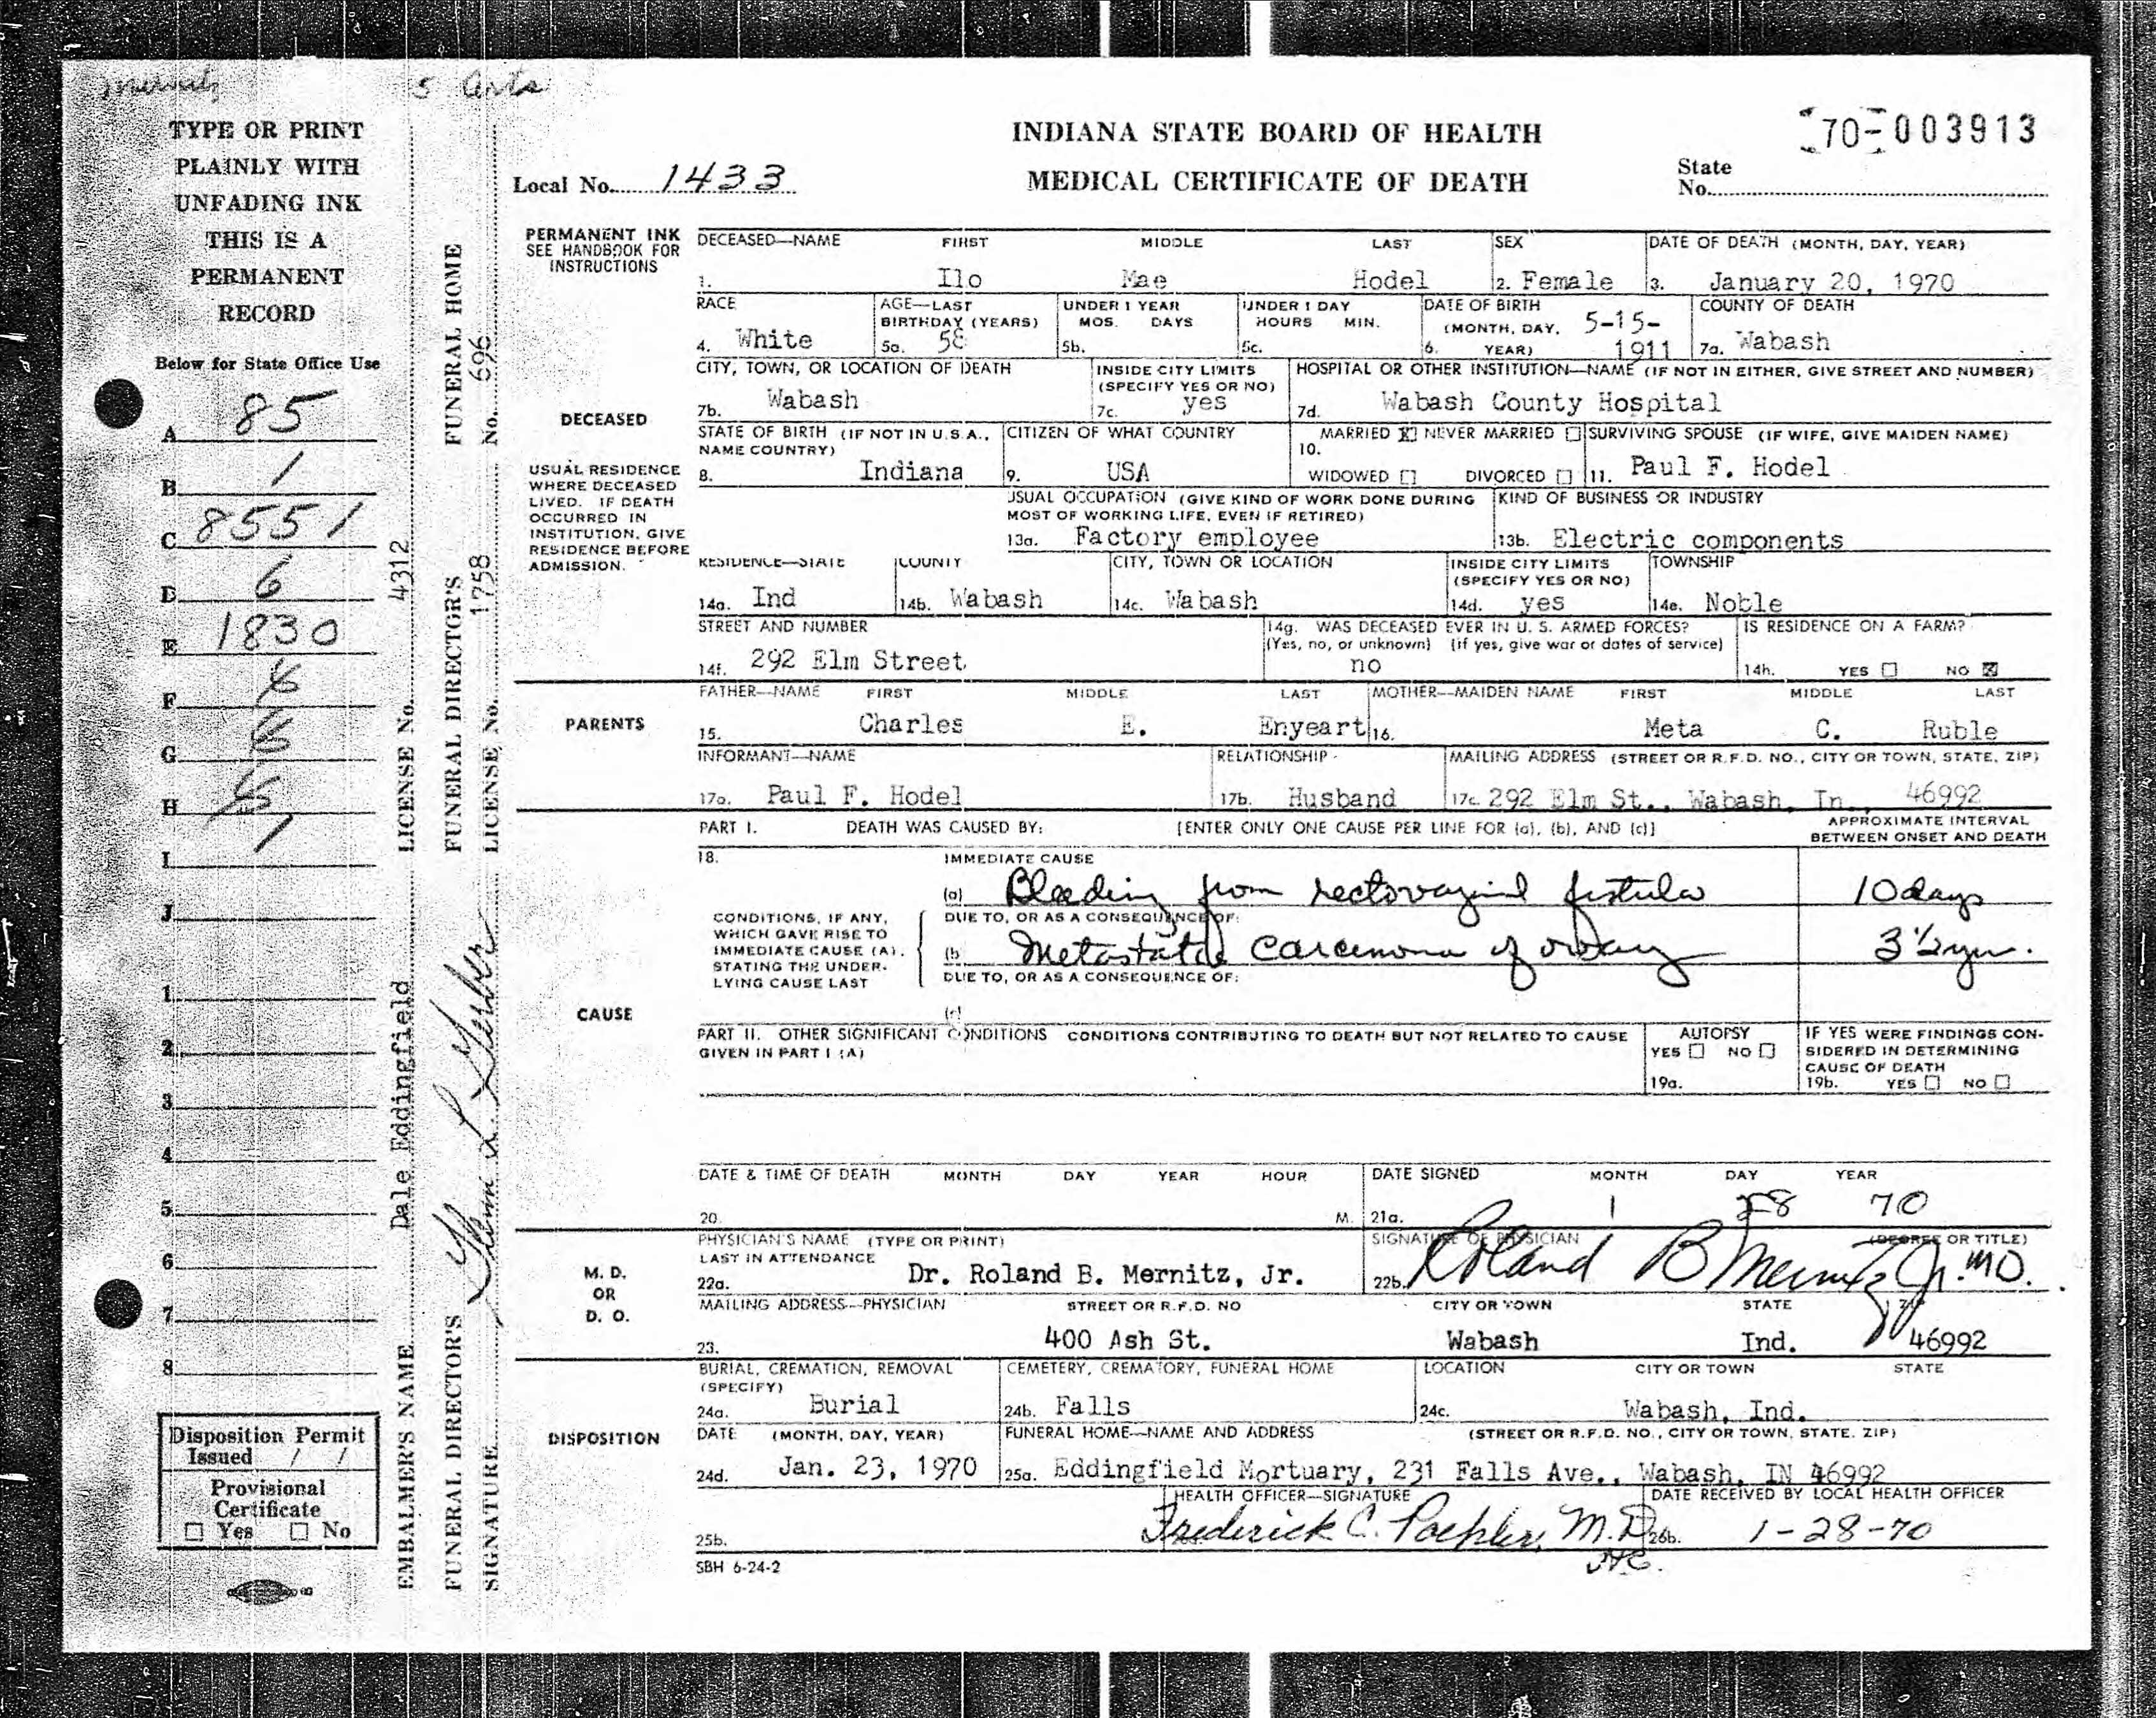 Mernitz 5 Certs
TYPE OR PRINT
PLAINLY WITH
UNFADING INK
THIS IS A
PERMANENT
RECORD
Below for State Office Use
A 85
B 1
C 8551
D 6
E 1830
F
G
H
I
J
1
2
3
4
5
6
7
8
Disposition Permit
Issued / /
Provisional
Certificate
☐ Yes ☐ No
EMBALMER'S NAME Dale Eddingfield LICENSE No. 4312
FUNERAL DIRECTOR'S FUNERAL DIRECTOR'S FUNERAL HOME
SIGNATURE LICENSE No. 1758 No. 696
INDIANA STATE BOARD OF HEALTH
MEDICAL CERTIFICATE OF DEATH
Local No. 1433
70-003913
State
No.
PERMANENT INK
SEE HANDBOOK FOR
INSTRUCTIONS
DECEASED—NAME FIRST MIDDLE LAST SEX DATE OF DEATH (MONTH, DAY, YEAR)
1. Ilo Mae Hodel 2. Female 3. January 20, 1970
RACE AGE—LAST UNDER 1 YEAR UNDER 1 DAY DATE OF BIRTH COUNTY OF DEATH
BIRTHDAY (YEARS) MOS. DAYS HOURS MIN. (MONTH, DAY, 5-15-
4. White 5a. 58 5b. 5c. 6. YEAR) 1911 7a. Wabash
CITY, TOWN, OR LOCATION OF DEATH INSIDE CITY LIMITS HOSPITAL OR OTHER INSTITUTION—NAME (IF NOT IN EITHER, GIVE STREET AND NUMBER)
(SPECIFY YES OR NO)
7b. Wabash 7c. yes 7d. Wabash County Hospital
DECEASED
STATE OF BIRTH (IF NOT IN U.S.A., CITIZEN OF WHAT COUNTRY MARRIED ☒ NEVER MARRIED ☐ SURVIVING SPOUSE (IF WIFE, GIVE MAIDEN NAME)
NAME COUNTRY) 10.
8. Indiana 9. USA WIDOWED ☐ DIVORCED ☐ 11. Paul F. Hodel
USUAL RESIDENCE
WHERE DECEASED
LIVED. IF DEATH
OCCURRED IN
INSTITUTION, GIVE
RESIDENCE BEFORE
ADMISSION.
USUAL OCCUPATION (GIVE KIND OF WORK DONE DURING KIND OF BUSINESS OR INDUSTRY
MOST OF WORKING LIFE, EVEN IF RETIRED)
13a. Factory employee 13b. Electric components
RESIDENCE—STATE COUNTY CITY, TOWN OR LOCATION INSIDE CITY LIMITS TOWNSHIP
(SPECIFY YES OR NO)
14a. Ind 14b. Wabash 14c. Wabash 14d. yes 14e. Noble
STREET AND NUMBER 14g. WAS DECEASED EVER IN U. S. ARMED FORCES? IS RESIDENCE ON A FARM?
(Yes, no, or unknown) (if yes, give war or dates of service)
14f. 292 Elm Street no 14h. YES ☐ NO ☒
PARENTS
FATHER—NAME FIRST MIDDLE LAST MOTHER—MAIDEN NAME FIRST MIDDLE LAST
15. Charles E. Enyeart 16. Meta C. Ruble
INFORMANT—NAME RELATIONSHIP MAILING ADDRESS (STREET OR R.F.D. NO., CITY OR TOWN, STATE, ZIP)
17a. Paul F. Hodel 17b. Husband 17c. 292 Elm St., Wabash, In., 46992
PART I. DEATH WAS CAUSED BY: [ENTER ONLY ONE CAUSE PER LINE FOR (a), (b), AND (c)] APPROXIMATE INTERVAL
BETWEEN ONSET AND DEATH
18. IMMEDIATE CAUSE
(a) Bleeding from rectovaginal fistula 10 days
CONDITIONS, IF ANY,
WHICH GAVE RISE TO
IMMEDIATE CAUSE (A),
STATING THE UNDER-
LYING CAUSE LAST
DUE TO, OR AS A CONSEQUENCE OF:
(b) Metastatic Carcinoma of ovary 3 1/2 yrs.
DUE TO, OR AS A CONSEQUENCE OF:
(c)
CAUSE
PART II. OTHER SIGNIFICANT CONDITIONS CONDITIONS CONTRIBUTING TO DEATH BUT NOT RELATED TO CAUSE
GIVEN IN PART I (A)
AUTOPSY
YES ☐ NO ☐
19a.
IF YES WERE FINDINGS CON-
SIDERED IN DETERMINING
CAUSE OF DEATH
19b. YES ☐ NO ☐
DATE & TIME OF DEATH MONTH DAY YEAR HOUR DATE SIGNED MONTH DAY YEAR
20. M. 21a. 1 28 70
M. D.
OR
D. O.
PHYSICIAN'S NAME (TYPE OR PRINT) SIGNATURE OF PHYSICIAN (DEGREE OR TITLE)
LAST IN ATTENDANCE
22a. Dr. Roland B. Mernitz, Jr. 22b. Roland B Mernitz Jr. MD.
MAILING ADDRESS—PHYSICIAN STREET OR R.F.D. NO CITY OR TOWN STATE ZIP
23. 400 Ash St. Wabash Ind. 46992
DISPOSITION
BURIAL, CREMATION, REMOVAL CEMETERY, CREMATORY, FUNERAL HOME LOCATION CITY OR TOWN STATE
(SPECIFY)
24a. Burial 24b. Falls 24c. Wabash, Ind.
DATE (MONTH, DAY, YEAR) FUNERAL HOME—NAME AND ADDRESS (STREET OR R.F.D. NO., CITY OR TOWN, STATE, ZIP)
24d. Jan. 23, 1970 25a. Eddingfield Mortuary, 231 Falls Ave., Wabash, IN 46992
HEALTH OFFICER—SIGNATURE DATE RECEIVED BY LOCAL HEALTH OFFICER
25b. Frederick C. Poehler, M.D. 26b. 1-28-70
SBH 6-24-2